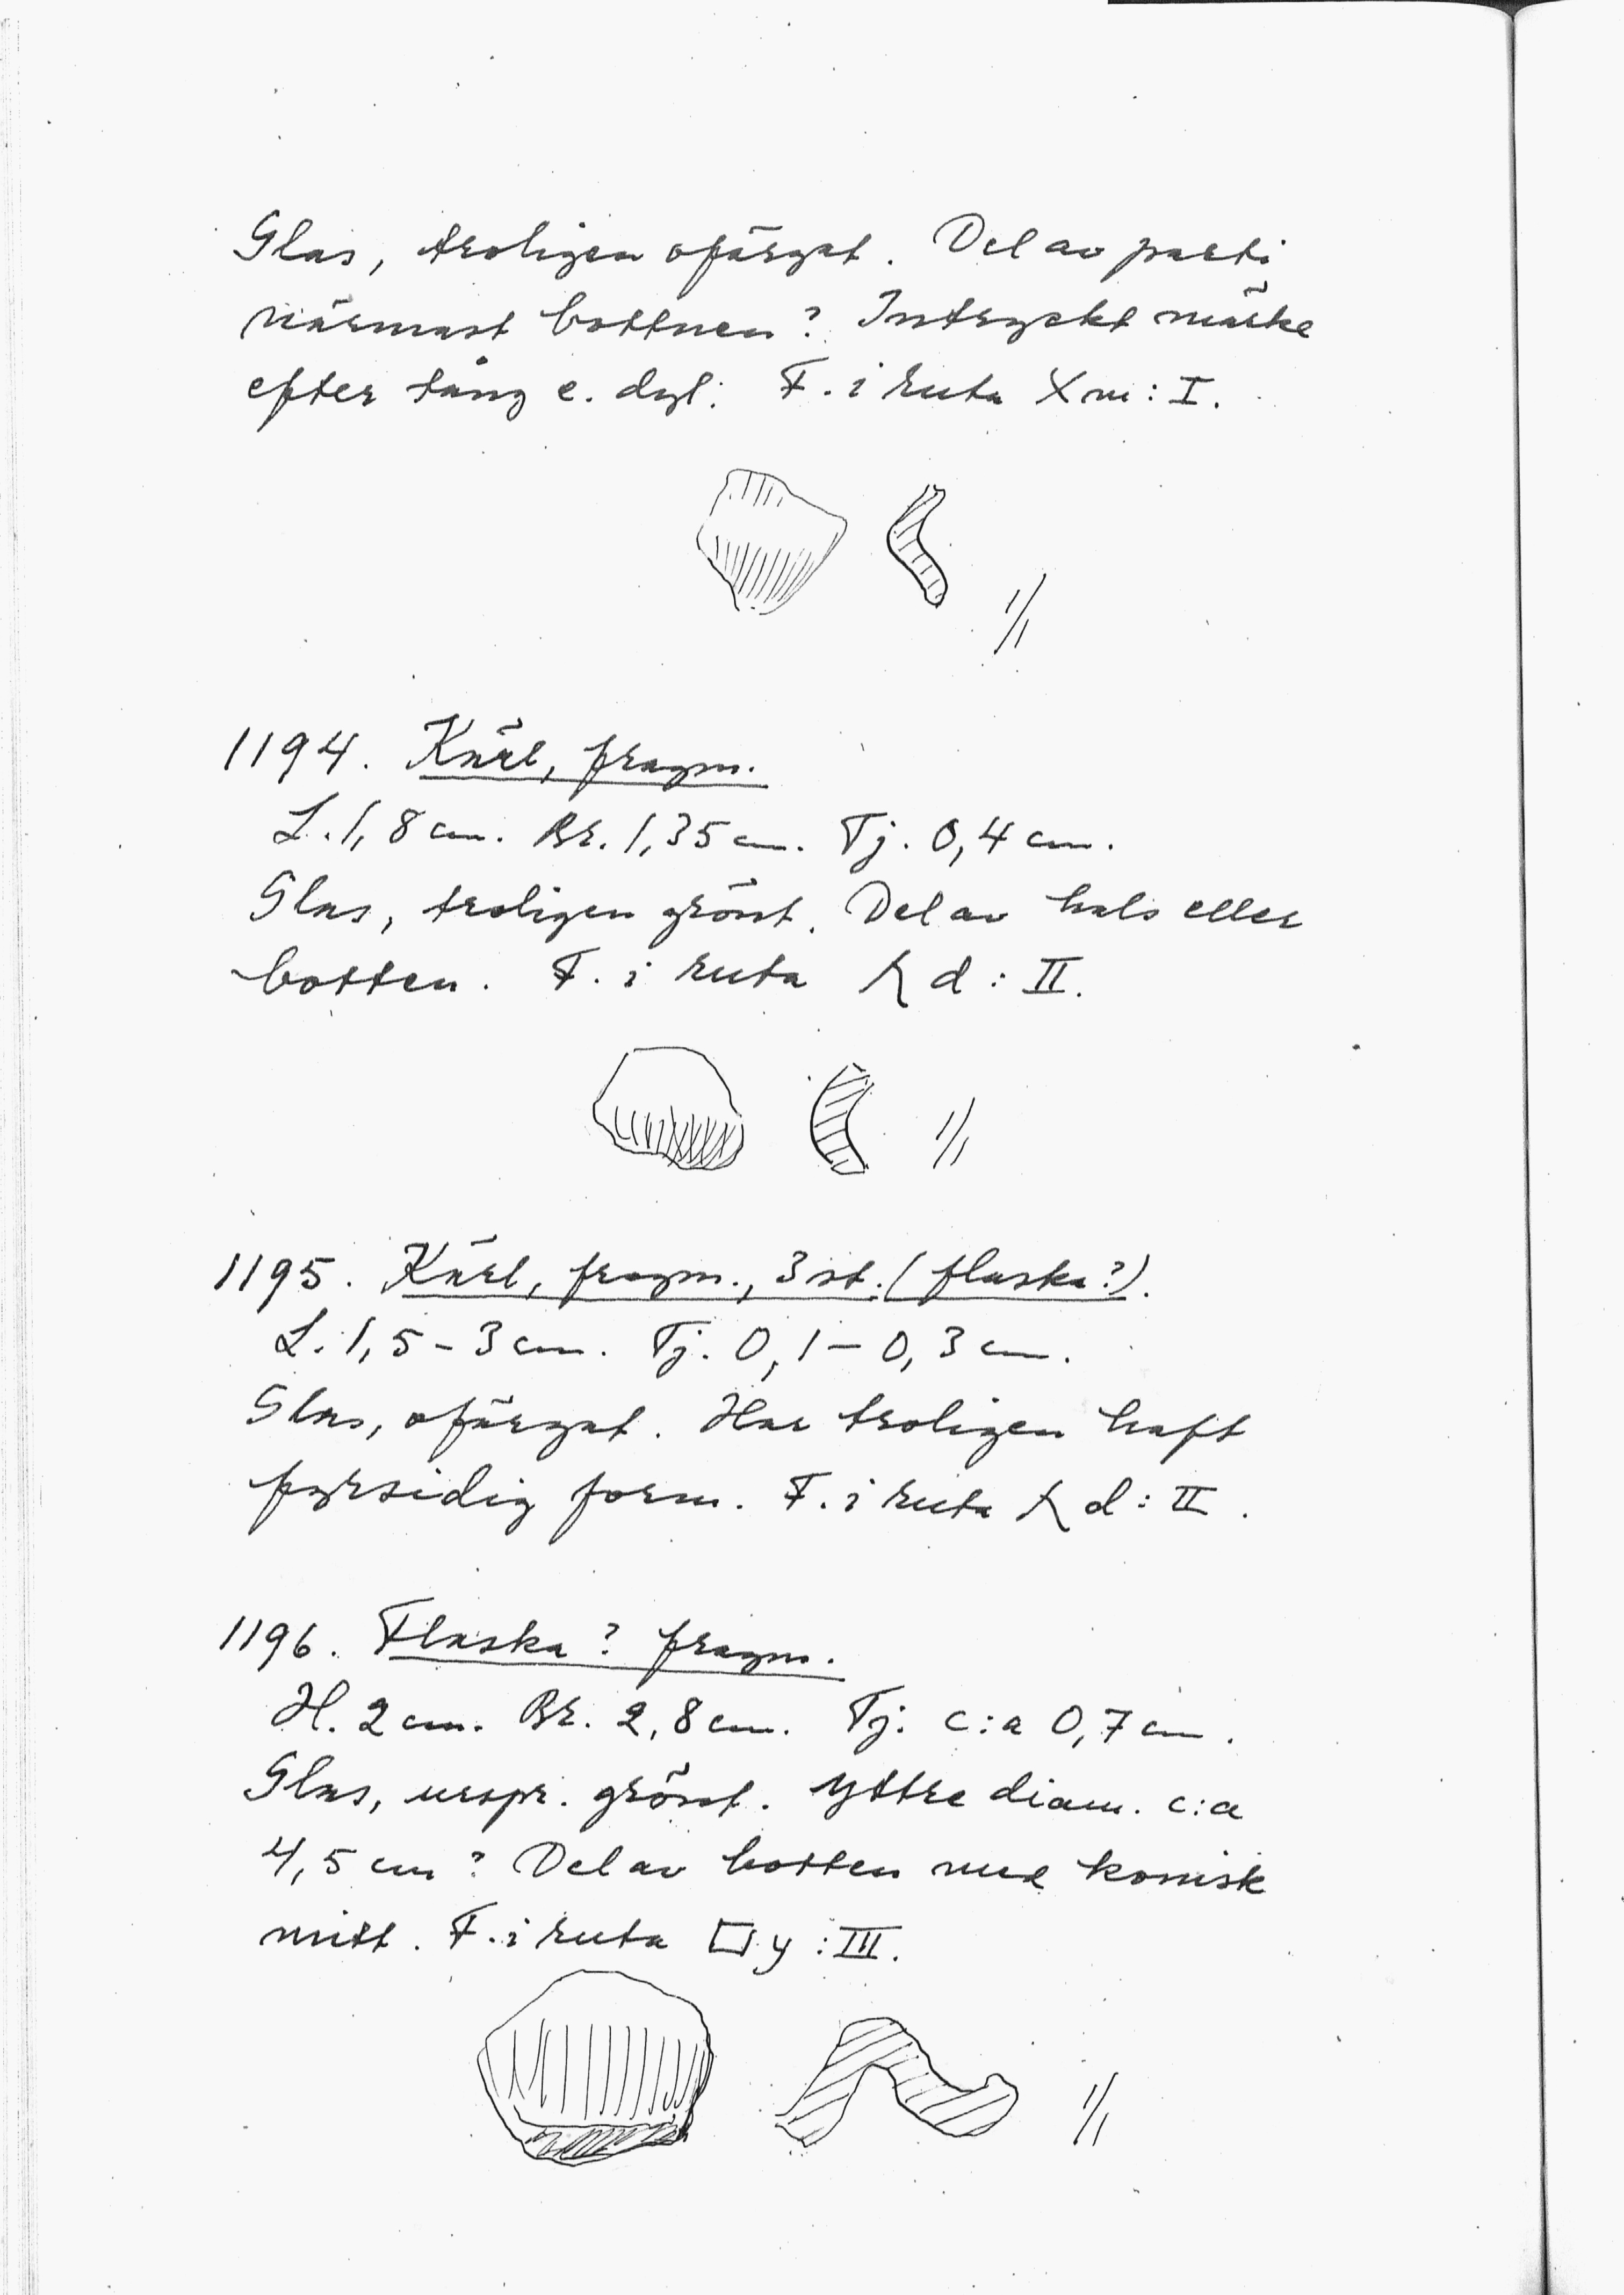 Glas, troligen ofärgat. Del av parti
närmast bottnen? Intryckt märke
efter tång e. dyl. F. i ruta Xm: I.
1/1
1194. Kärl, fragm.
L. 1,8 cm. Br. 1,35 cm. Tj. 0,4 cm.
Glas, troligen grönt. Del av hals eller
botten. F. i ruta d: II.
1/1
1195. Kärl, fragm., 3 st. (flaska?).
L. 1,5 - 3 cm. Tj. 0,1 - 0,3 cm.
Glas, ofärgat. Har troligen haft
fyrsidig form. F. i ruta d: II.
1196. Flaska? fragm.
H. 2 cm. Br. 2,8 cm. Tj. c:a 0,7 cm.
Glas, urspr. grönt. Yttre diam. c:a
4,5 cm? Del av botten med konisk
mitt. F. i ruta y: III.
1/1